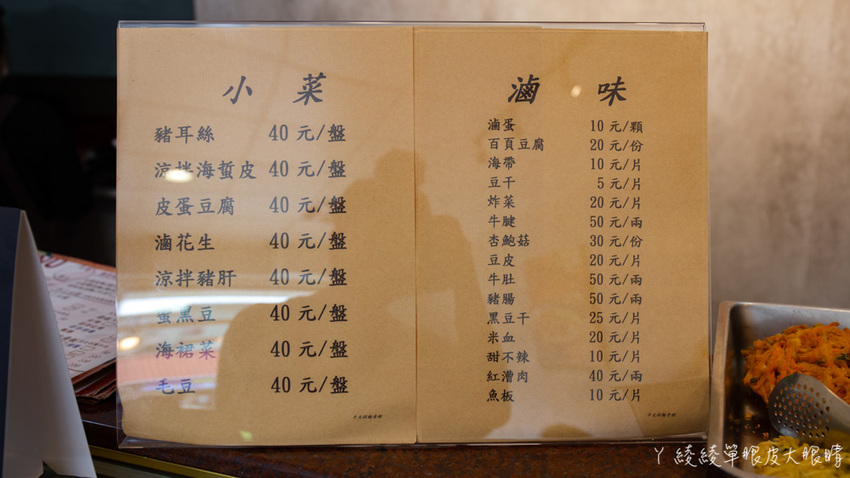 小菜
豬耳絲 40 元/盤
涼拌海蜇皮 40 元/盤
皮蛋豆腐 40 元/盤
滷花生 40 元/盤
涼拌豬肝 40 元/盤
蜜黑豆 40 元/盤
海裙菜 40 元/盤
毛豆 40 元/盤
滷味
滷蛋 10 元/顆
百頁豆腐 20 元/份
海帶 10 元/片
豆干 5 元/片
炸菜 20 元/片
牛腱 50 元/兩
杏鮑菇 30 元/份
豆皮 20 元/片
牛肚 50 元/兩
豬腸 50 元/兩
黑豆干 25 元/片
米血 20 元/片
甜不辣 10 元/片
紅漕肉 40 元/兩
魚板 10 元/片
ㄚ綾綾單眼皮大眼睛